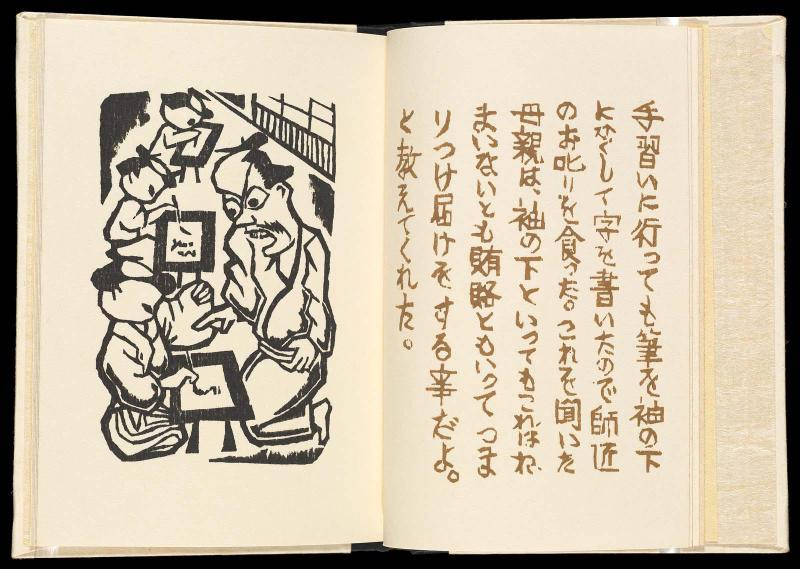 手習いに行っても筆を袖の下
にかくして字を書いたので師匠
のお叱りを食った。これを聞いた
母親は、袖の下といってもこれはね、
まいないとも賄賂ともいってつま
りつけ届けをする事だよ。
と教えてくれた。